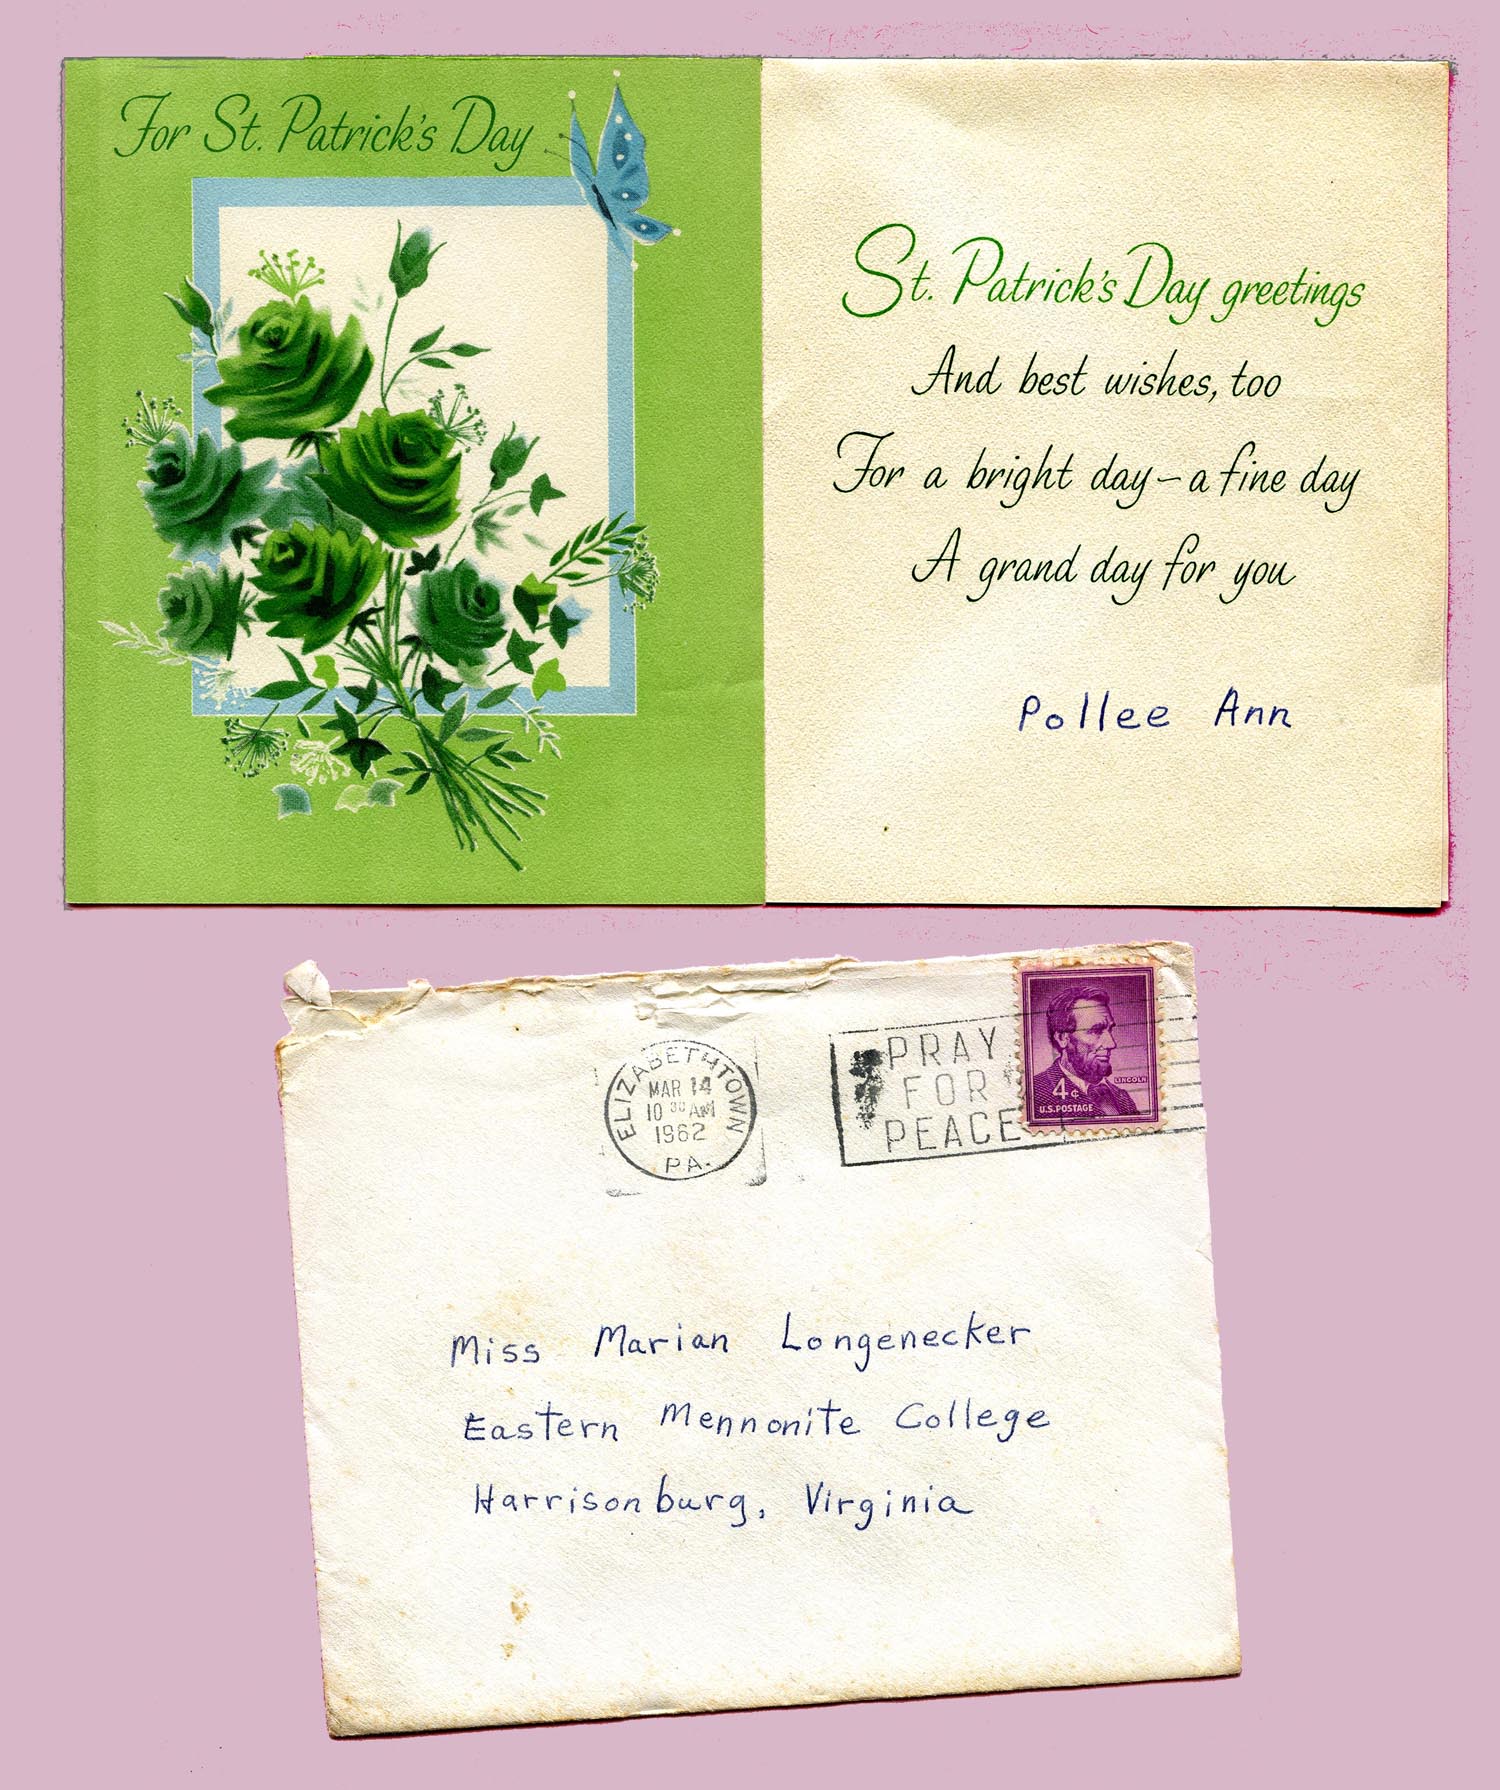 For St. Patrick's Day
St. Patrick's Day greetings
And best wishes, too
For a bright day—a fine day
A grand day for you
Pollee Ann
ELIZABETHTOWN
MAR 14
10 30 AM
1962
PA.
PRAY
FOR
PEACE
LINCOLN
4¢
U.S. POSTAGE
Miss Marian Longenecker
Eastern Mennonite College
Harrisonburg, Virginia